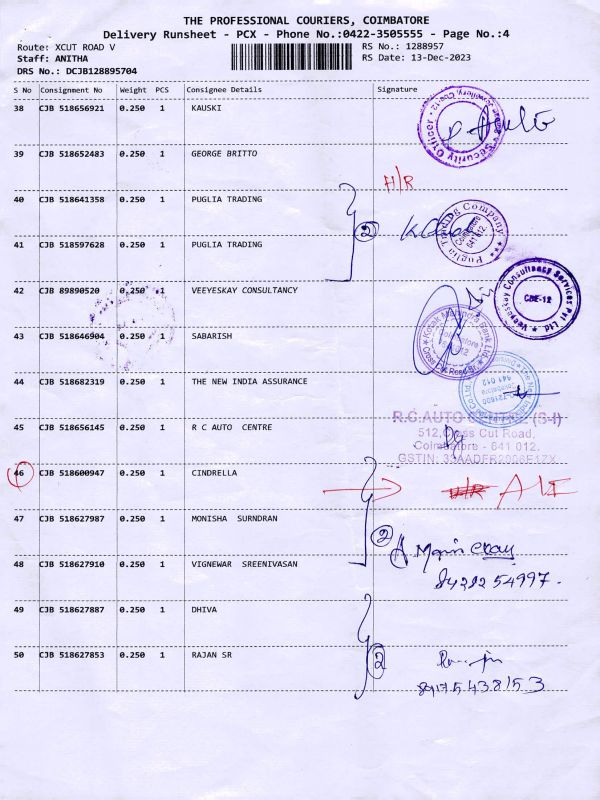 THE PROFESSIONAL COURIERS, COIMBATORE
Delivery Runsheet - PCX - Phone No.:0422-3505555 - Page No.:4
Route: XCUT ROAD V RS No.: 1288957
Staff: ANITHA RS Date: 13-Dec-2023
DRS No.: DCJB128895704
S No Consignment No Weight PCS Consignee Details Signature
38 CJB 518656921 0.250 1 KAUSKI
Security Officer
39 CJB 518652483 0.250 1 GEORGE BRITTO
H/R
40 CJB 518641358 0.250 1 PUGLIA TRADING
2
Puglia Trading Company Coimbatore 641 012
41 CJB 518597628 0.250 1 PUGLIA TRADING
42 CJB 89890520 0.250 1 VEEYESKAY CONSULTANCY
Veeyeskay Consultancy Services Pvt Ltd CBE-12
43 CJB 518646904 0.250 1 SABARISH
Kotak Mahindra Bank Ltd Cross Cut Road Br.
44 CJB 518682319 0.250 1 THE NEW INDIA ASSURANCE
45 CJB 518656145 0.250 1 R C AUTO CENTRE
R.C.AUTO CENTRE (S-I)
512,Cross Cut Road,
Coimbatore - 641 012.
46 CJB 518600947 0.250 1 CINDRELLA
47 CJB 518627987 0.250 1 MONISHA SURNDRAN
2
48 CJB 518627910 0.250 1 VIGNEWAR SREENIVASAN
49 CJB 518627887 0.250 1 DHIVA
50 CJB 518627853 0.250 1 RAJAN SR
2